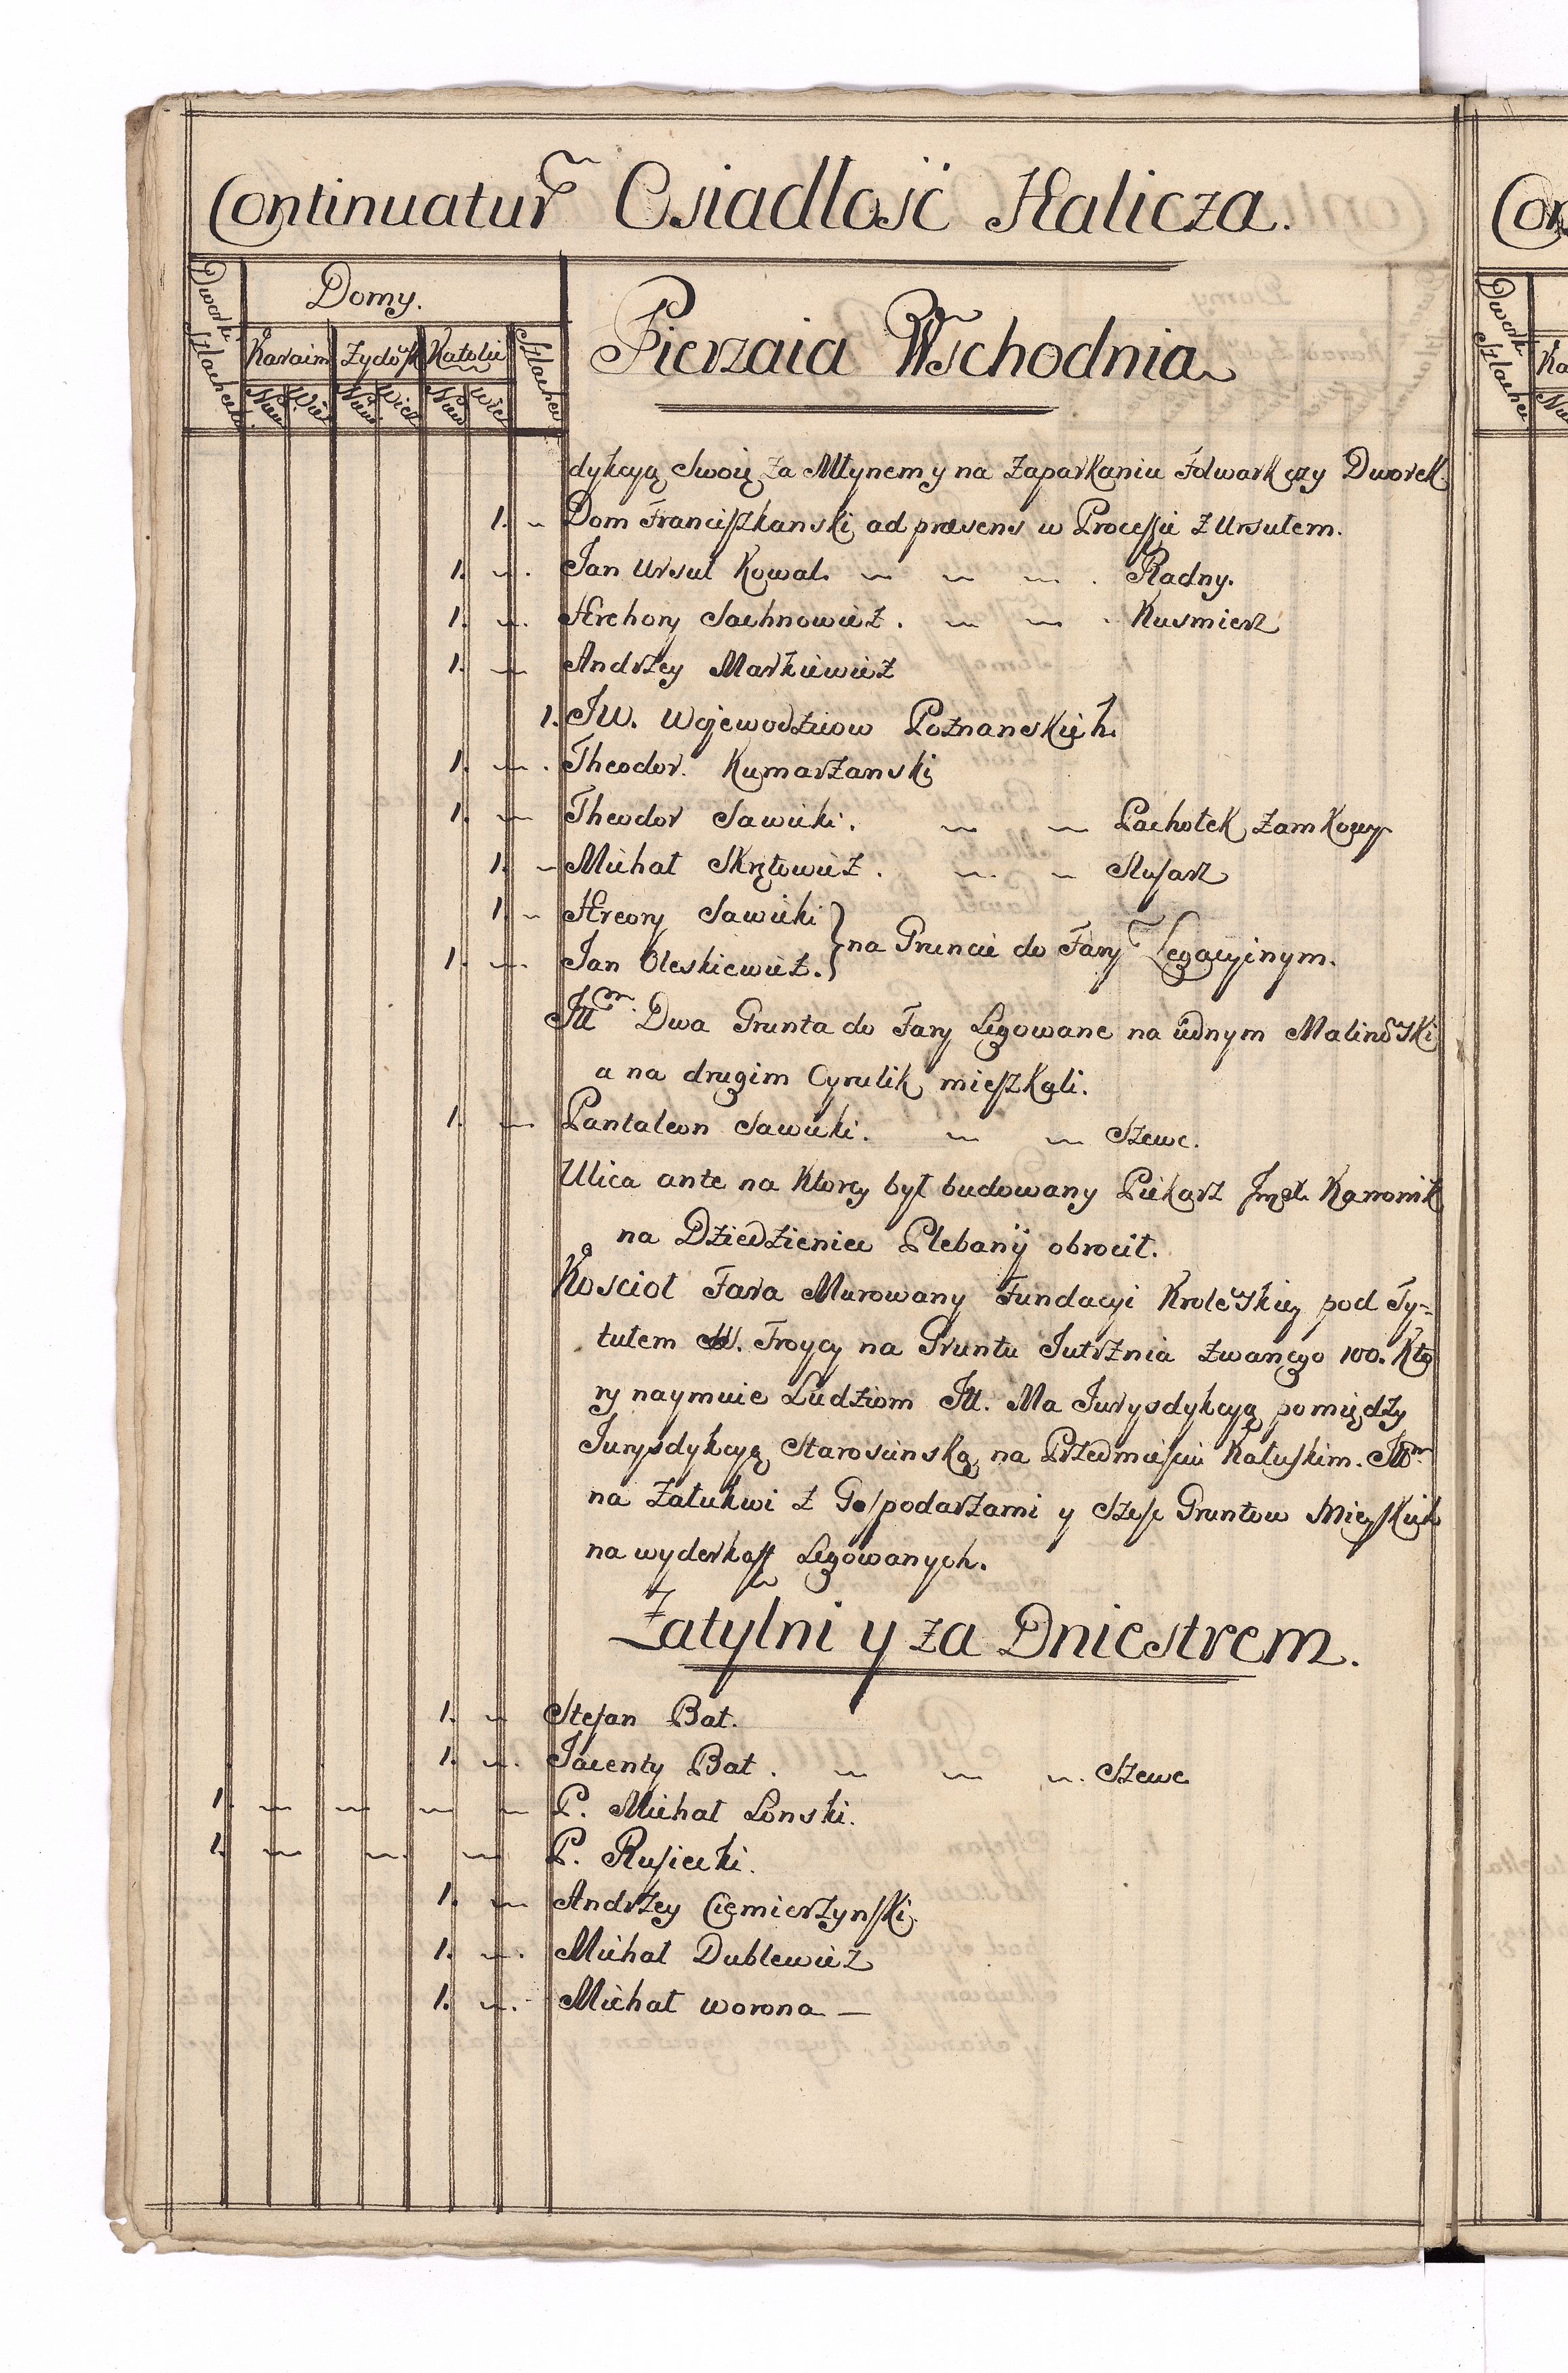 Continuatur Osiadlość Halicza.
Dwork Szlachec
Domy.
Karaim Zydōw Katolic Szlachec
Naw Wiec Naw Wiec Naw Wiec
Pierzaia Wschodnia
dykcyą Swoię za Młynem y na Zaparkaniu Folwark czy Dworek.
1. Dom Franciszkanski ad præsens w Processie z Ursułem.
1. Jan Ursuł Kowal. Radny.
1. Hrehory Sachnowicz. Kusmierz
1. Andrzey Markiewicz
1. JW. Wojewodzicow Poznanskich.
1. Theodor. Kumarzanski
1. Theodor Sawicki. Pachołek Zamkowy
1. Michał Skrętowicz. Slusarz
1. Hreory Sawicki
1. Jan Oleskiewicz. } na Gruncie do Fary Legacyinym.
Itt Dwa Grunta do Fary Legowane na iednym Malinowski
a na drugim Cyrulik mieszkali.
1. Pantaleon Sawicki. Szewc.
Ulica ante na Ktorey był budowany Piekarz Jmść Kanonik
na Dziedziniec Plebanij obrocił.
Kosciol Fara Murowany Fundacyi Krolewskiey pod Ty=
tułem S. Troycy na Gruntu Jutrznia zwanego 100. Kto
ry naymuie Ludziom Itt. Ma Jurysdykcyą pomiędzy
Jurysdykcyą Starościnską na Przedmiesciu Kałuskim. Ittm
na Załukwi z Gospodarzami y Szesc Gruntow Mieyskich
na wyderkaff Legowanych.
Zatylni y za Dniestrem.
1. Stefan Bat.
1. Jacenty Bat. Szewc
1. P. Michał Lonski.
1. P. Rusiecki.
1. Andrzey Ciemierzynski.
1. Michał Dublewicz
1. Michał Worona